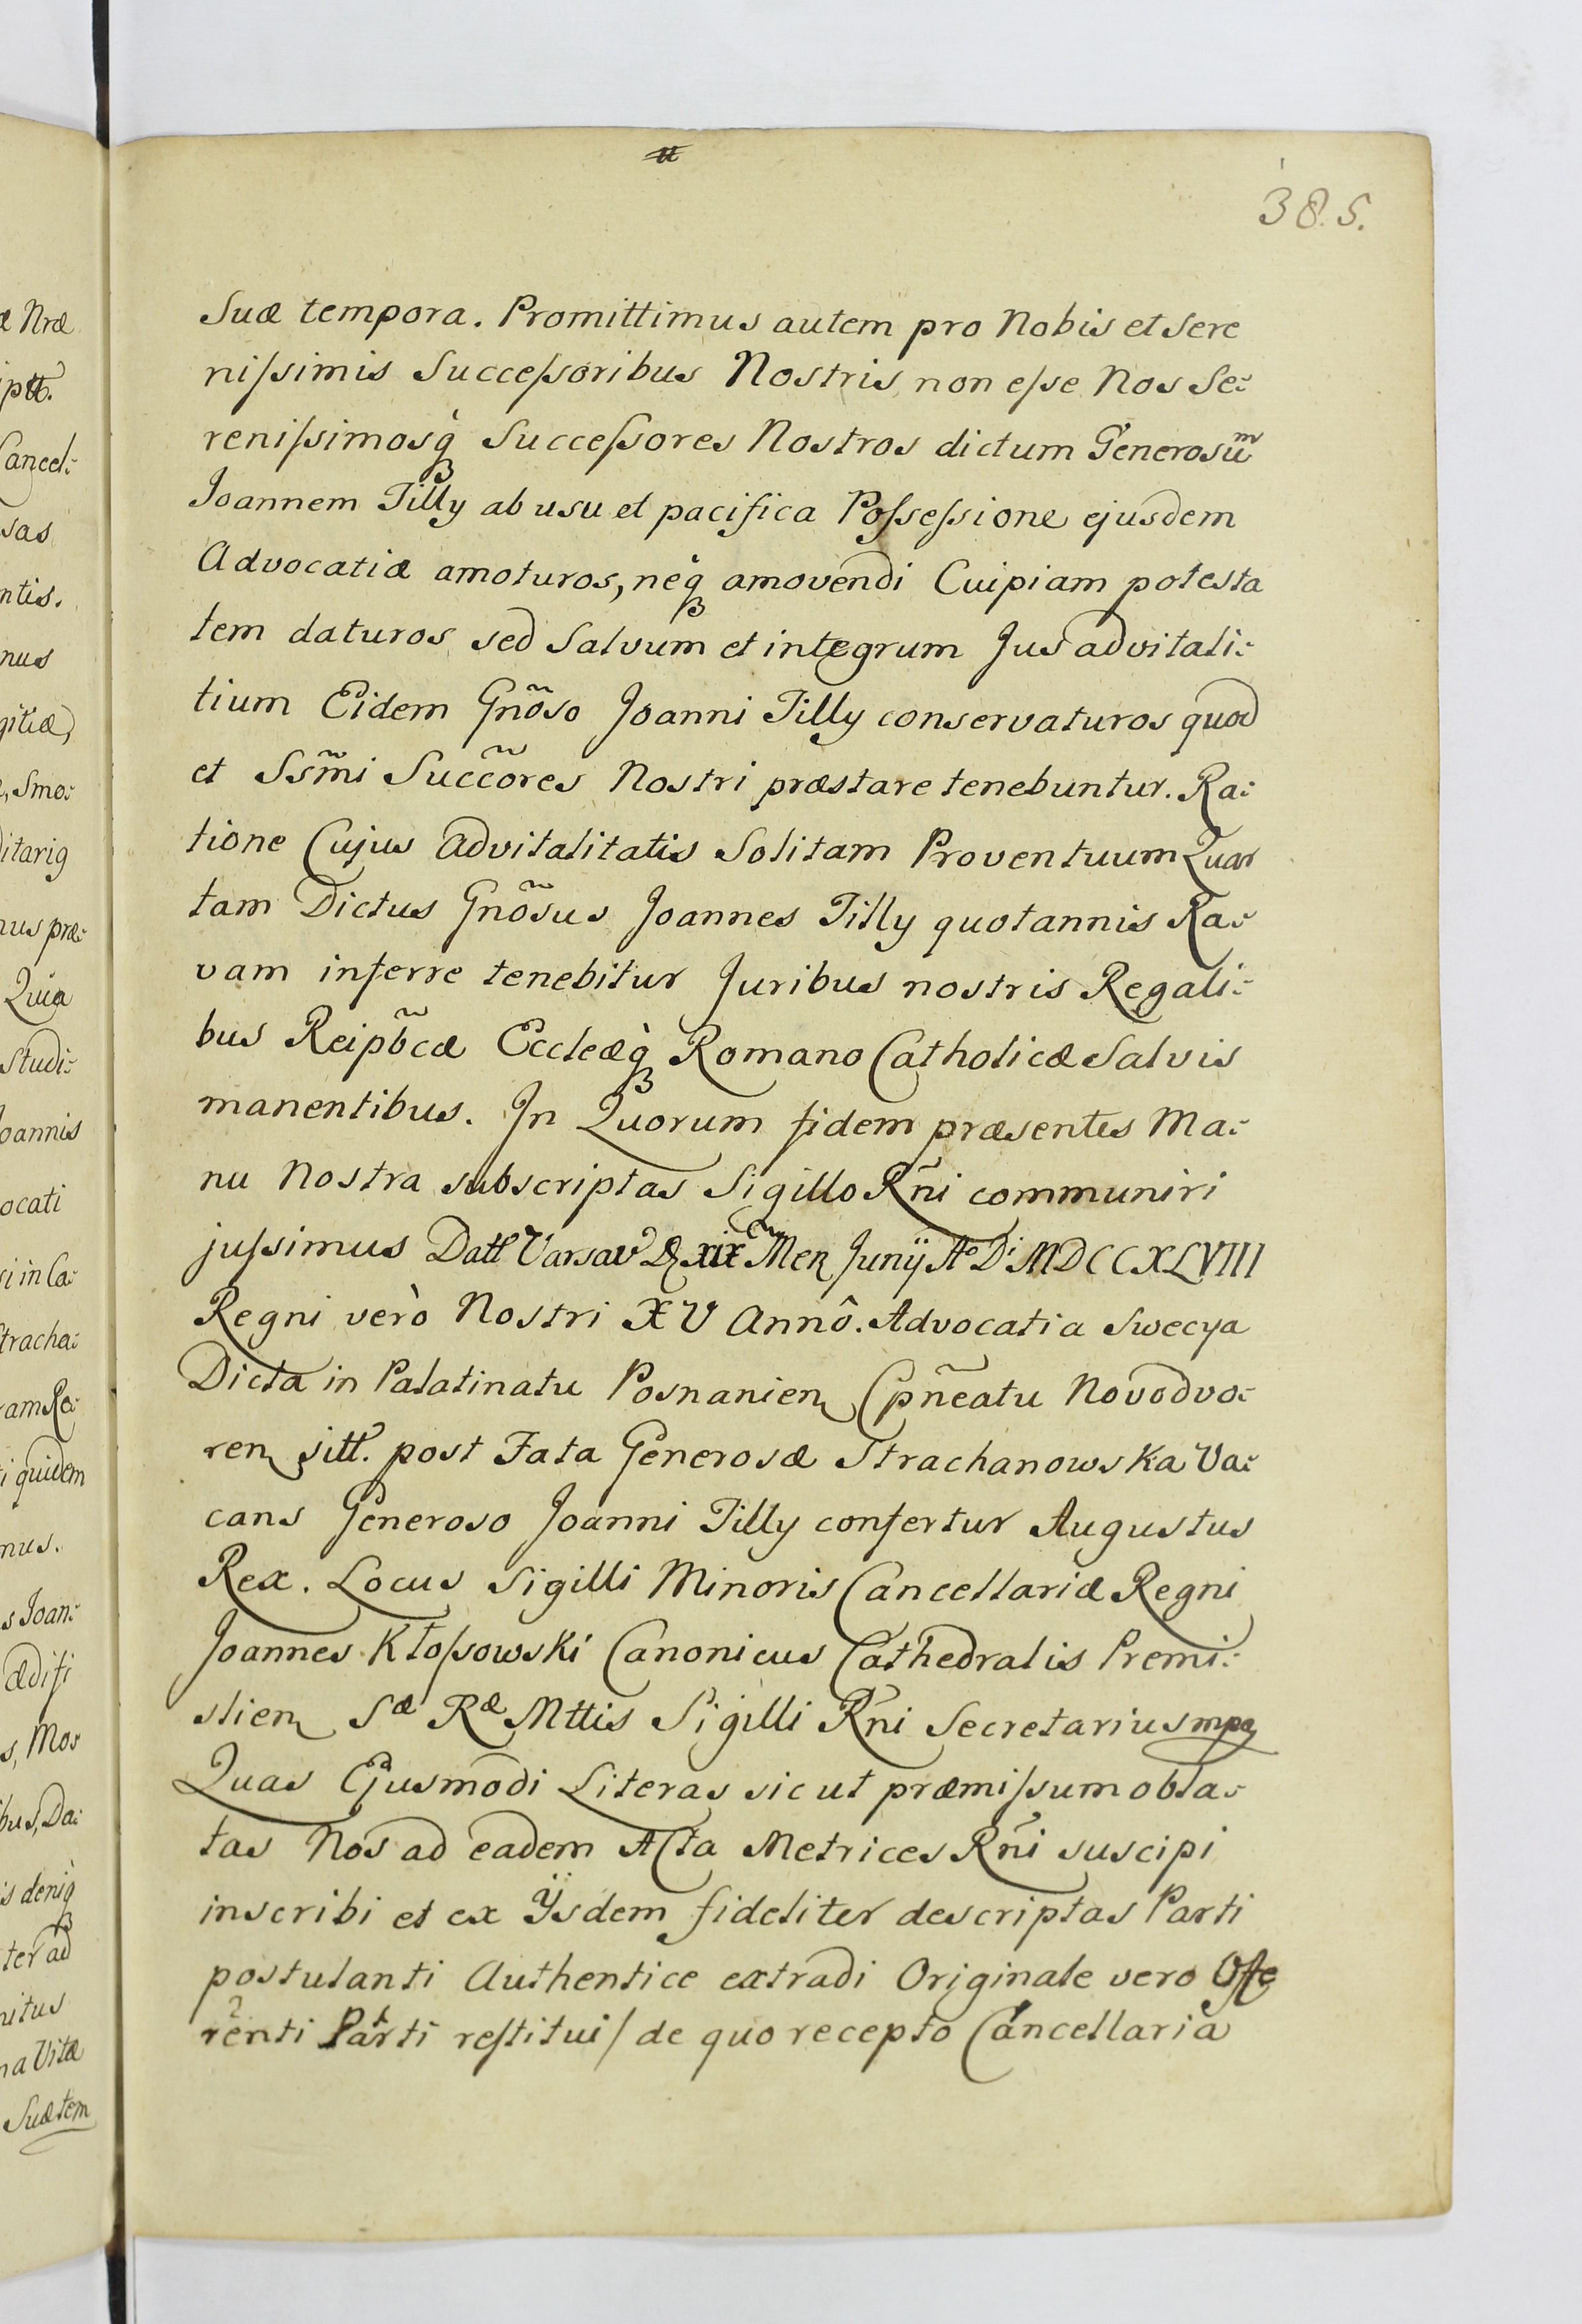 385.
Suæ tempora. Promittimus autem pro Nobis et Sere
niſsimis Succeſsoribus Nostris, non eſse Nos Se:
reniſsimosq̀ Succeſsores Nostros dictum Generosuᵐ
Joannem Tilly ab usu et pacifica Poſseſsione ejusdem
Advocatiæ amoturos, neq̀ amovendi Cuipiam potesta
tem daturos sed Salvum et integrum Jus advitali:
tium Eidem Gnõso Joanni Tilly conservaturos quod
et Ssm̃i Succc̃ores Nostri præstare tenebuntur. Ra:
tione Cujus Advitalitatis Solitam Proventuum Quar
tam Dictus Gnõsus Joannes Tilly quotannis Ra:
vam inferre tenebitur Juribus nostris Regali:
bus Reipb̃cæ Eccleæq̀ Romano Catholicæ Salvis
manentibus. In Quorum fidem præsentes Ma:
nu Nostra subscriptas Sigillo Rñi communiri
juſsimus Datt Varsav D XIX Men Junÿ Aº Dⁱ MDCCXLVIII
Regni verò Nostri XV Annô. Advocatia Swecya
Dicta in Palatinatu Posnanien Cpñeatu Novodvo:
ren sitt. post Fata Generosæ Strachanowska Va:
cans Generoso Joanni Tilly confertur Augustus
Rex. Locus Sigilli Minoris Cancellariæ Regni
Joannes Kłoſsowski Canonicus Cathedralis Premi:
slien Sæ Ræ Mttis Sigilli Rñi Secretarius mpa
Quas Ejusmodi Literas sic ut præmiſsum obla:
tas Nos ad eadem Acta Metrices Rñi suscipi
inscribi et ex Ÿsdem fideliter descriptas Parti
postulanti Authentice extradi Originale vero Offe
renti Parti reſtitui / de quo recepto Cancellaria